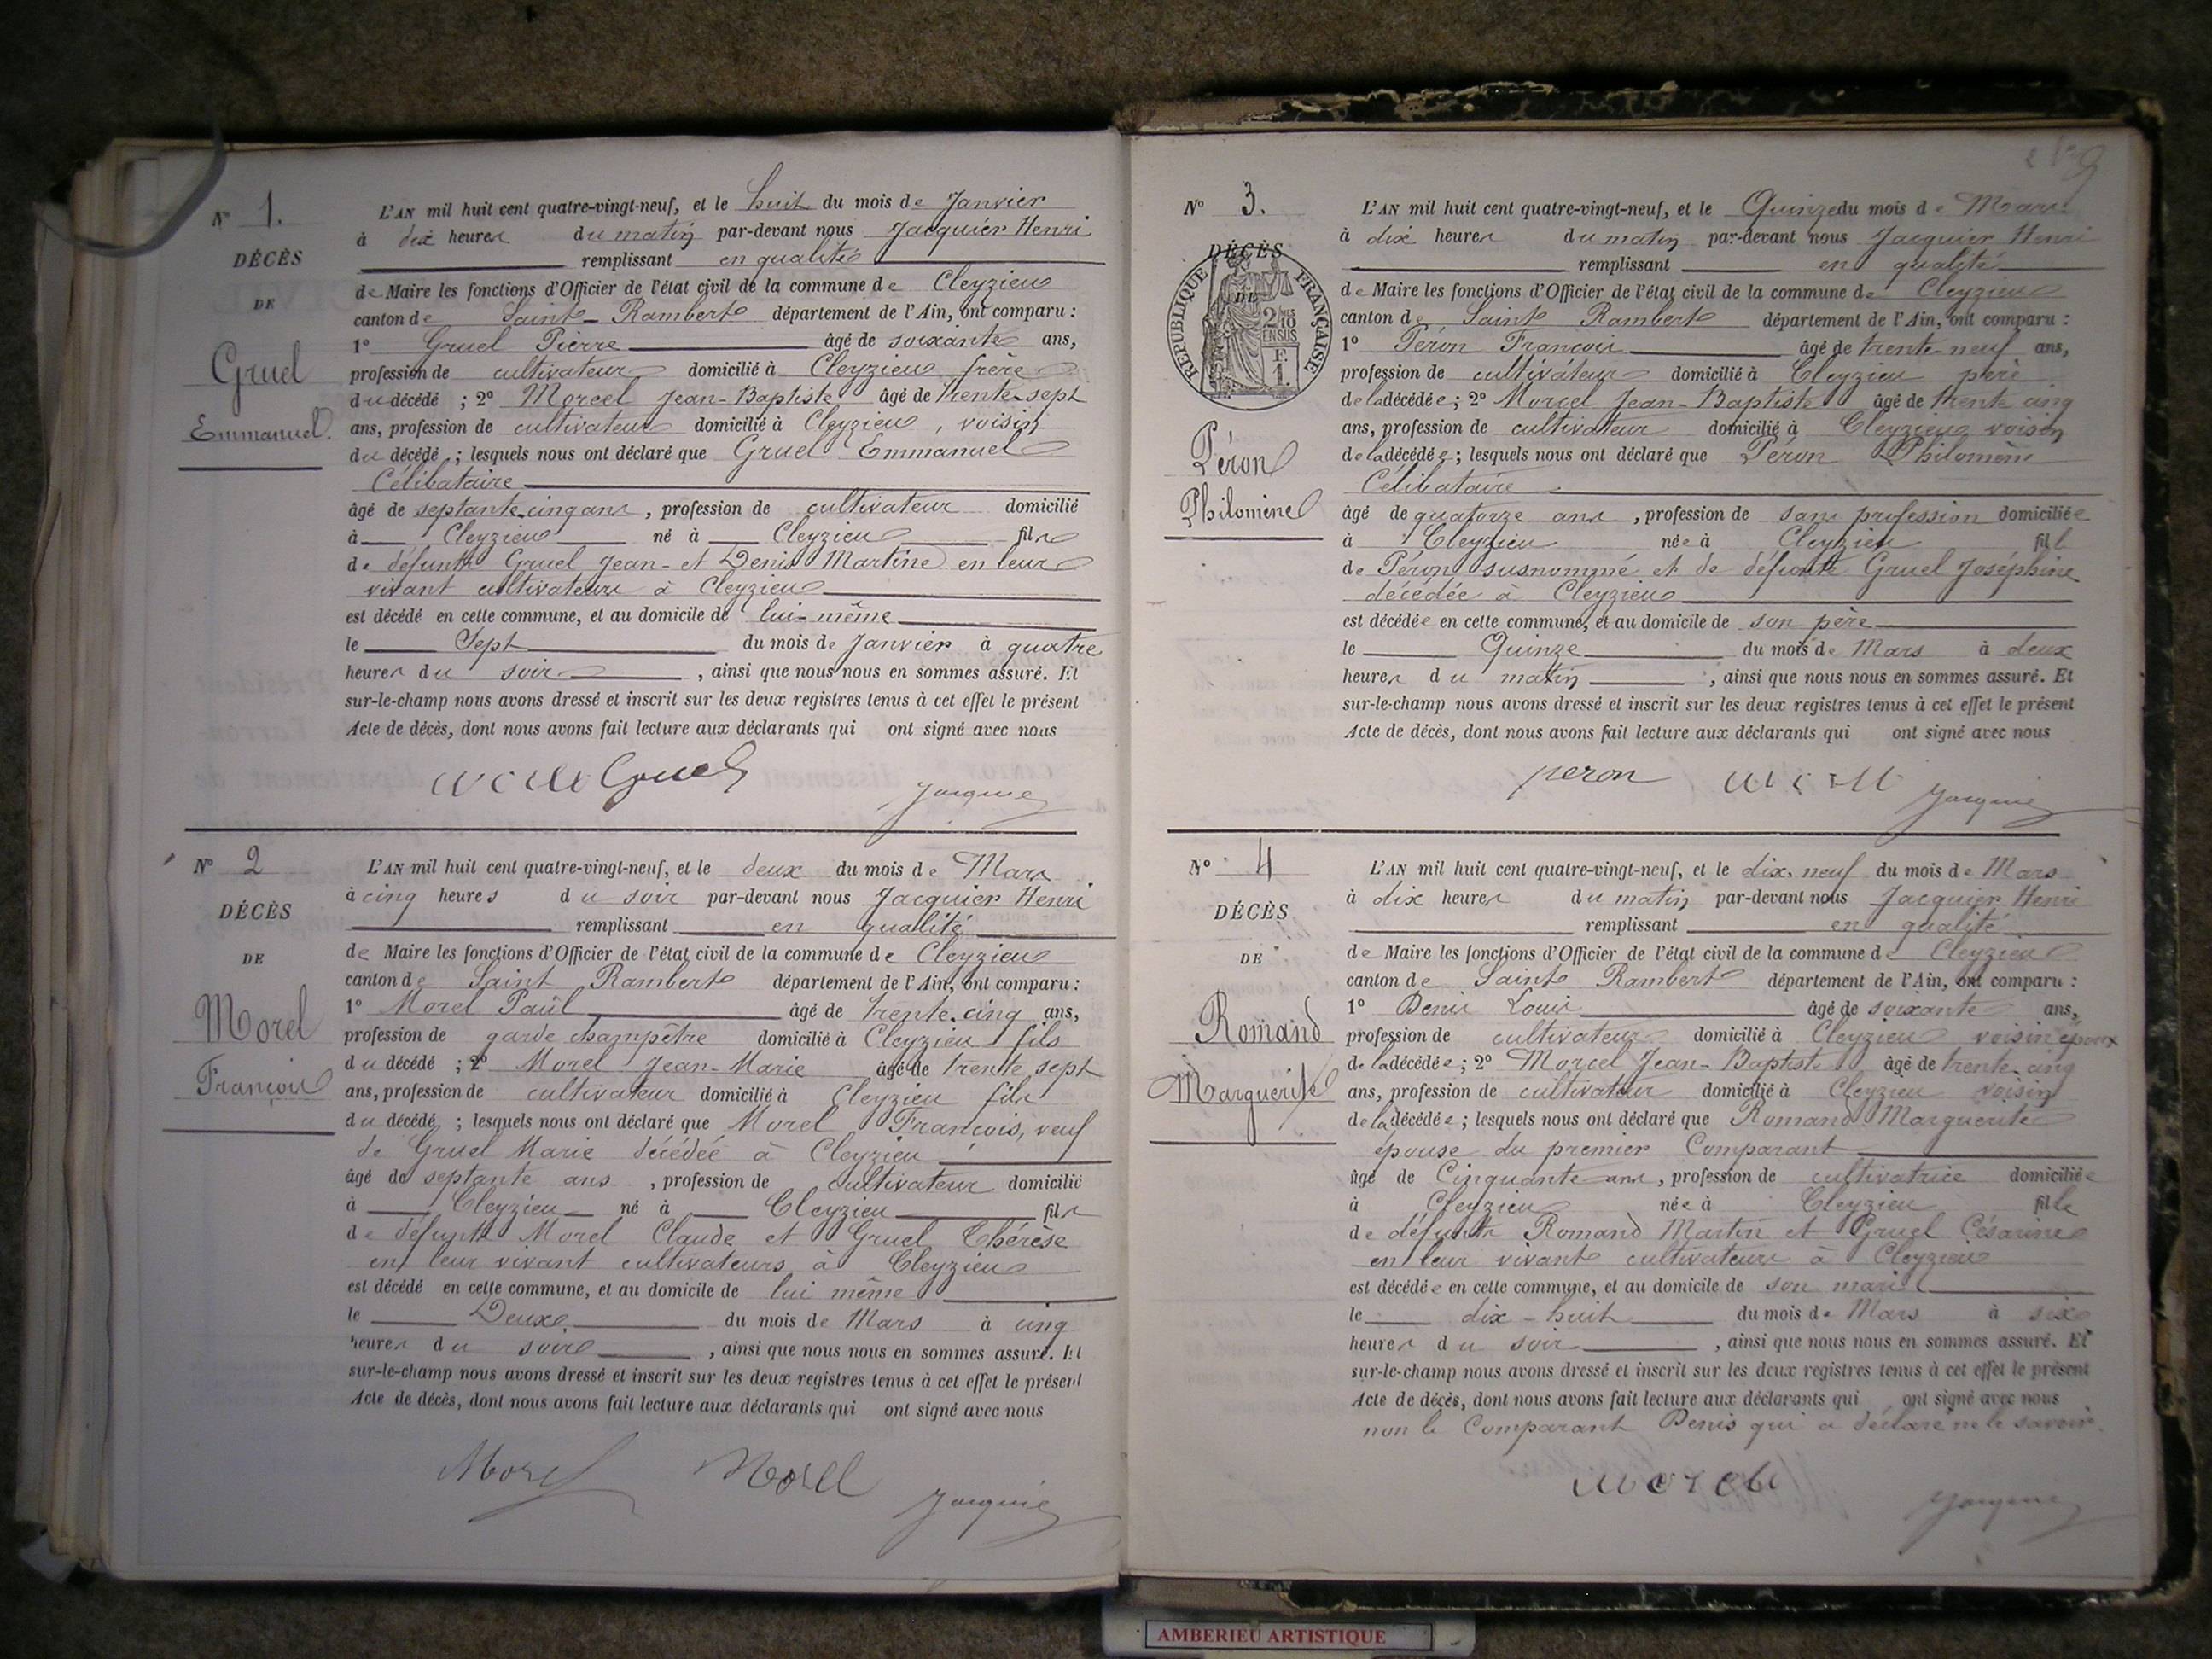 N° 1.
DÉCÈS
DE
Gruel
Emmanuel.
L'AN mil huit cent quatre-vingt-neuf, et le huit du mois de Janvier
à dix heures du matin par-devant nous Jacquier Henri
remplissant en qualité
de Maire les fonctions d'Officier de l'état civil de la commune de Cleyzieu
canton de Saint-Rambert département de l'Ain, ont comparu :
1° Gruel Pierre âgé de soixante ans,
profession de cultivateur domicilié à Cleyzieu frère
du décédé ; 2° Morcel Jean-Baptiste âgé de trente-sept
ans, profession de cultivateur domicilié à Cleyzieu, voisin
du décédé ; lesquels nous ont déclaré que Gruel Emmanuel
Célibataire
âgé de septante-cinq ans, profession de cultivateur domicilié
à Cleyzieu né à Cleyzieu fils
de défunts Gruel Jean et Denis Martine en leur
vivant cultivateurs à Cleyzieu
est décédé en cette commune, et au domicile de lui-même
le Sept du mois de Janvier à quatre
heures du soir, ainsi que nous nous en sommes assuré. Et
sur-le-champ nous avons dressé et inscrit sur les deux registres tenus à cet effet le présent
Acte de décès, dont nous avons fait lecture aux déclarants qui ont signé avec nous
Gruel Jacquier
N° 2
DÉCÈS
DE
Morel
François
L'AN mil huit cent quatre-vingt-neuf, et le deux du mois de Mars
à cinq heures du soir par-devant nous Jacquier Henri
remplissant en qualité
de Maire les fonctions d'Officier de l'état civil de la commune de Cleyzieu
canton de Saint Rambert département de l'Ain, ont comparu :
1° Morel Paul âgé de trente-cinq ans,
profession de garde champêtre domicilié à Cleyzieu fils
du décédé ; 2° Morel Jean-Marie âgé de trente sept
ans, profession de cultivateur domicilié à Cleyzieu fils
du décédé ; lesquels nous ont déclaré que Morel François, veuf
de Gruel Marie décédée à Cleyzieu
âgé de septante ans, profession de cultivateur domicilié
à Cleyzieu né à Cleyzieu fils
de défunts Morel Claude et Gruel Thérèse
en leur vivant cultivateurs à Cleyzieu
est décédé en cette commune, et au domicile de lui même
le Deux du mois de Mars à cinq
heures du soir, ainsi que nous nous en sommes assuré. Et
sur-le-champ nous avons dressé et inscrit sur les deux registres tenus à cet effet le présent
Acte de décès, dont nous avons fait lecture aux déclarants qui ont signé avec nous
Morel Morel Jacquier
N° 3.
DÉCÈS
DE
RÉPUBLIQUE FRANÇAISE
2/10 EN SUS
F. 1.
Péron
Philomène
L'AN mil huit cent quatre-vingt-neuf, et le Quinze du mois de Mars
à dix heures du matin par-devant nous Jacquier Henri
remplissant en qualité
de Maire les fonctions d'Officier de l'état civil de la commune de Cleyzieu
canton de Saint Rambert département de l'Ain, ont comparu :
1° Péron François âgé de trente-neuf ans,
profession de cultivateur domicilié à Cleyzieu père
de la décédée ; 2° Morcel Jean-Baptiste âgé de trente cinq
ans, profession de cultivateur domicilié à Cleyzieu voisin
de la décédée ; lesquels nous ont déclaré que Péron Philomène
Célibataire
âgé de quatorze ans, profession de sans profession domiciliée
à Cleyzieu née à Cleyzieu fill
de Péron susnommé et de défunte Gruel Joséphine
décédée à Cleyzieu
est décédée en cette commune, et au domicile de son père
le Quinze du mois de Mars à deux
heures du matin, ainsi que nous nous en sommes assuré. Et
sur-le-champ nous avons dressé et inscrit sur les deux registres tenus à cet effet le présent
Acte de décès, dont nous avons fait lecture aux déclarants qui ont signé avec nous
peron Jacquier
N° 4
DÉCÈS
DE
Romand
Marguerite
L'AN mil huit cent quatre-vingt-neuf, et le dix-neuf du mois de Mars
à dix heures du matin par-devant nous Jacquier Henri
remplissant en qualité
de Maire les fonctions d'Officier de l'état civil de la commune de Cleyzieu
canton de Saint Rambert département de l'Ain, ont comparu :
1° Denis Louis âgé de soixante ans,
profession de cultivateur domicilié à Cleyzieu voisin époux
de la décédée ; 2° Morcel Jean-Baptiste âgé de trente-cinq
ans, profession de cultivateur domicilié à Cleyzieu voisin
de la décédée ; lesquels nous ont déclaré que Romand Marguerite
épouse du premier Comparant
âgé de Cinquante ans, profession de cultivatrice domiciliée
à Cleyzieu née à Cleyzieu fille
de défunts Romand Martin et Gruel Césarine
en leur vivant cultivateurs à Cleyzieu
est décédée en cette commune, et au domicile de son mari
le dix-huit du mois de Mars à six
heures du soir, ainsi que nous nous en sommes assuré. Et
sur-le-champ nous avons dressé et inscrit sur les deux registres tenus à cet effet le présent
Acte de décès, dont nous avons fait lecture aux déclarants qui ont signé avec nous
non le Comparant Denis qui a déclaré ne le savoir.
Jacquier
AMBERIEU ARTISTIQUE